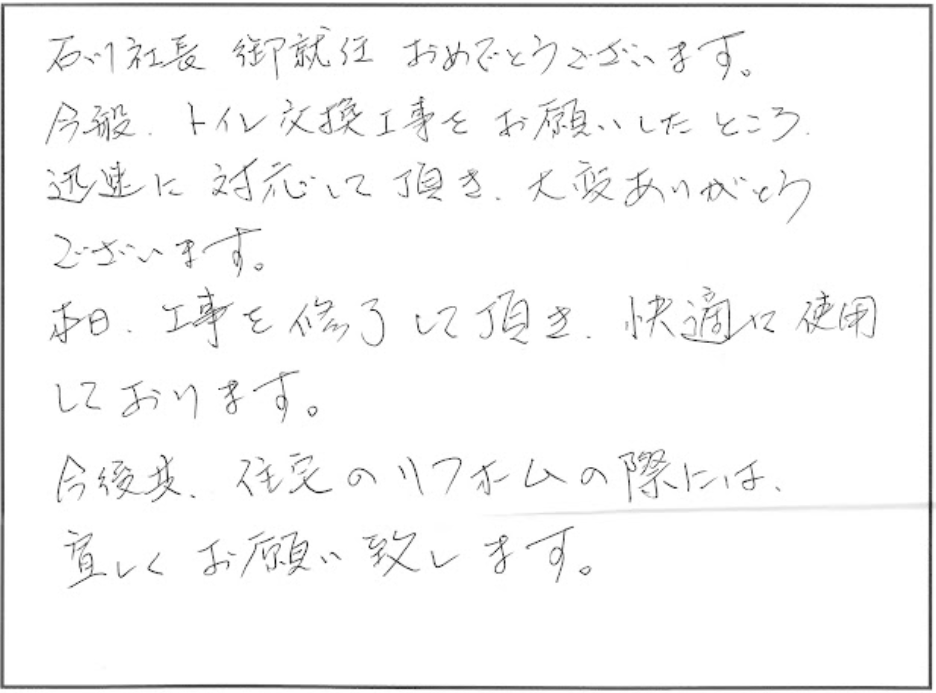 石川社長 御就任 おめでとうございます。
今般、トイレ交換工事を お願いしたところ、
迅速に 対応して 頂き、大変ありがとう
ございます。
本日、工事を 修了して 頂き、快適に 使用
しております。
今後共、住宅のリフホームの際には、
宜しく お願い致します。